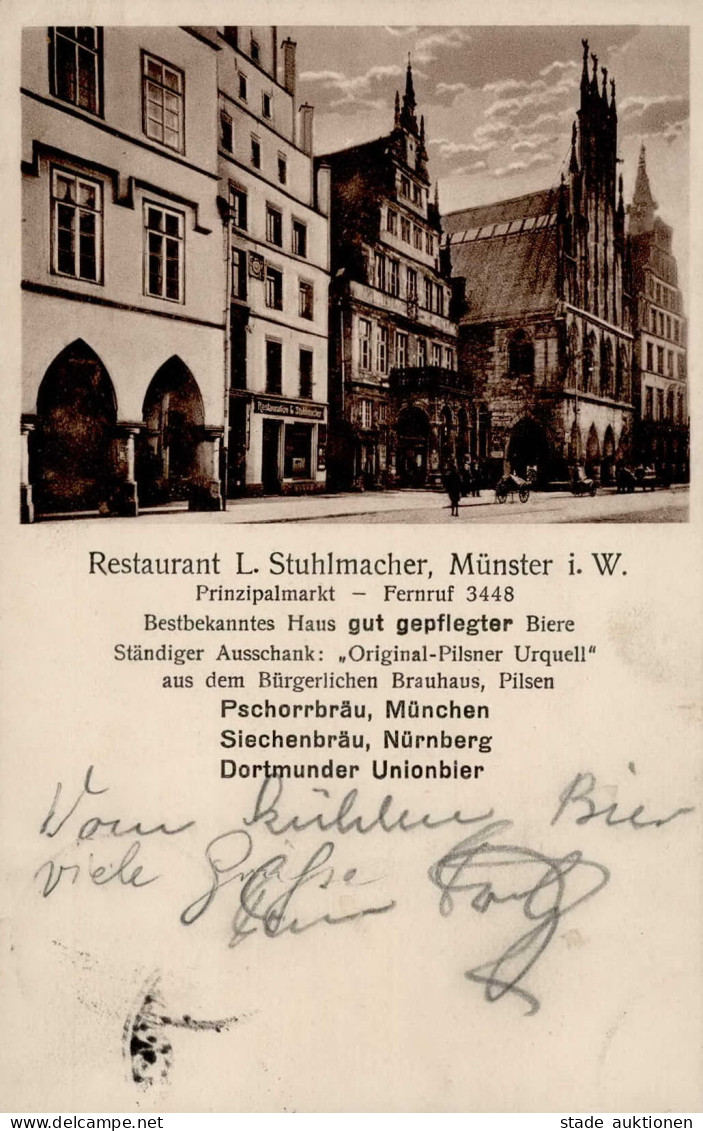 Restauration L. Stuhlmacher
Restaurant L. Stuhlmacher, Münster i. W.
Prinzipalmarkt – Fernruf 3448
Bestbekanntes Haus gut gepflegter Biere
Ständiger Ausschank: „Original-Pilsner Urquell“
aus dem Bürgerlichen Brauhaus, Pilsen
Pschorrbräu, München
Siechenbräu, Nürnberg
Dortmunder Unionbier
Vom kühlen Bier
viele Grüße
www.delcampe.net
stade auktionen